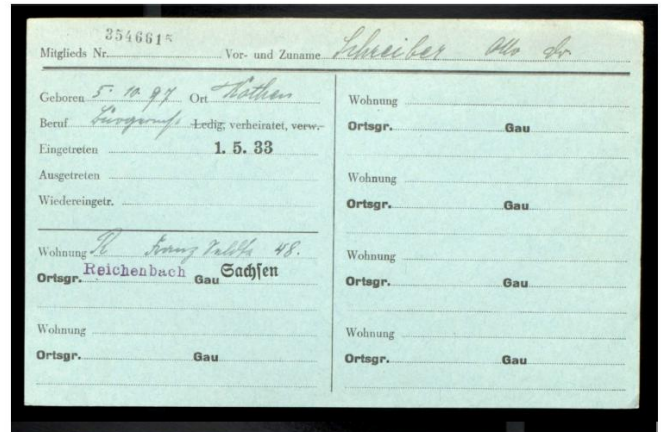 3546615
Mitglieds Nr. Vor- und Zuname Schreiber Otto Dr
Geboren 5. 10. 97 Ort Köthen
Beruf Ledig, verheiratet, verw.
Eingetreten 1. 5. 33
Ausgetreten
Wiedereingetr.
Wohnung R Franz Seldte 48.
Ortsgr. Reichenbach Gau Sachsen
Wohnung
Ortsgr. Gau
Wohnung
Ortsgr. Gau
Wohnung
Ortsgr. Gau
Wohnung
Ortsgr. Gau
Wohnung
Ortsgr. Gau